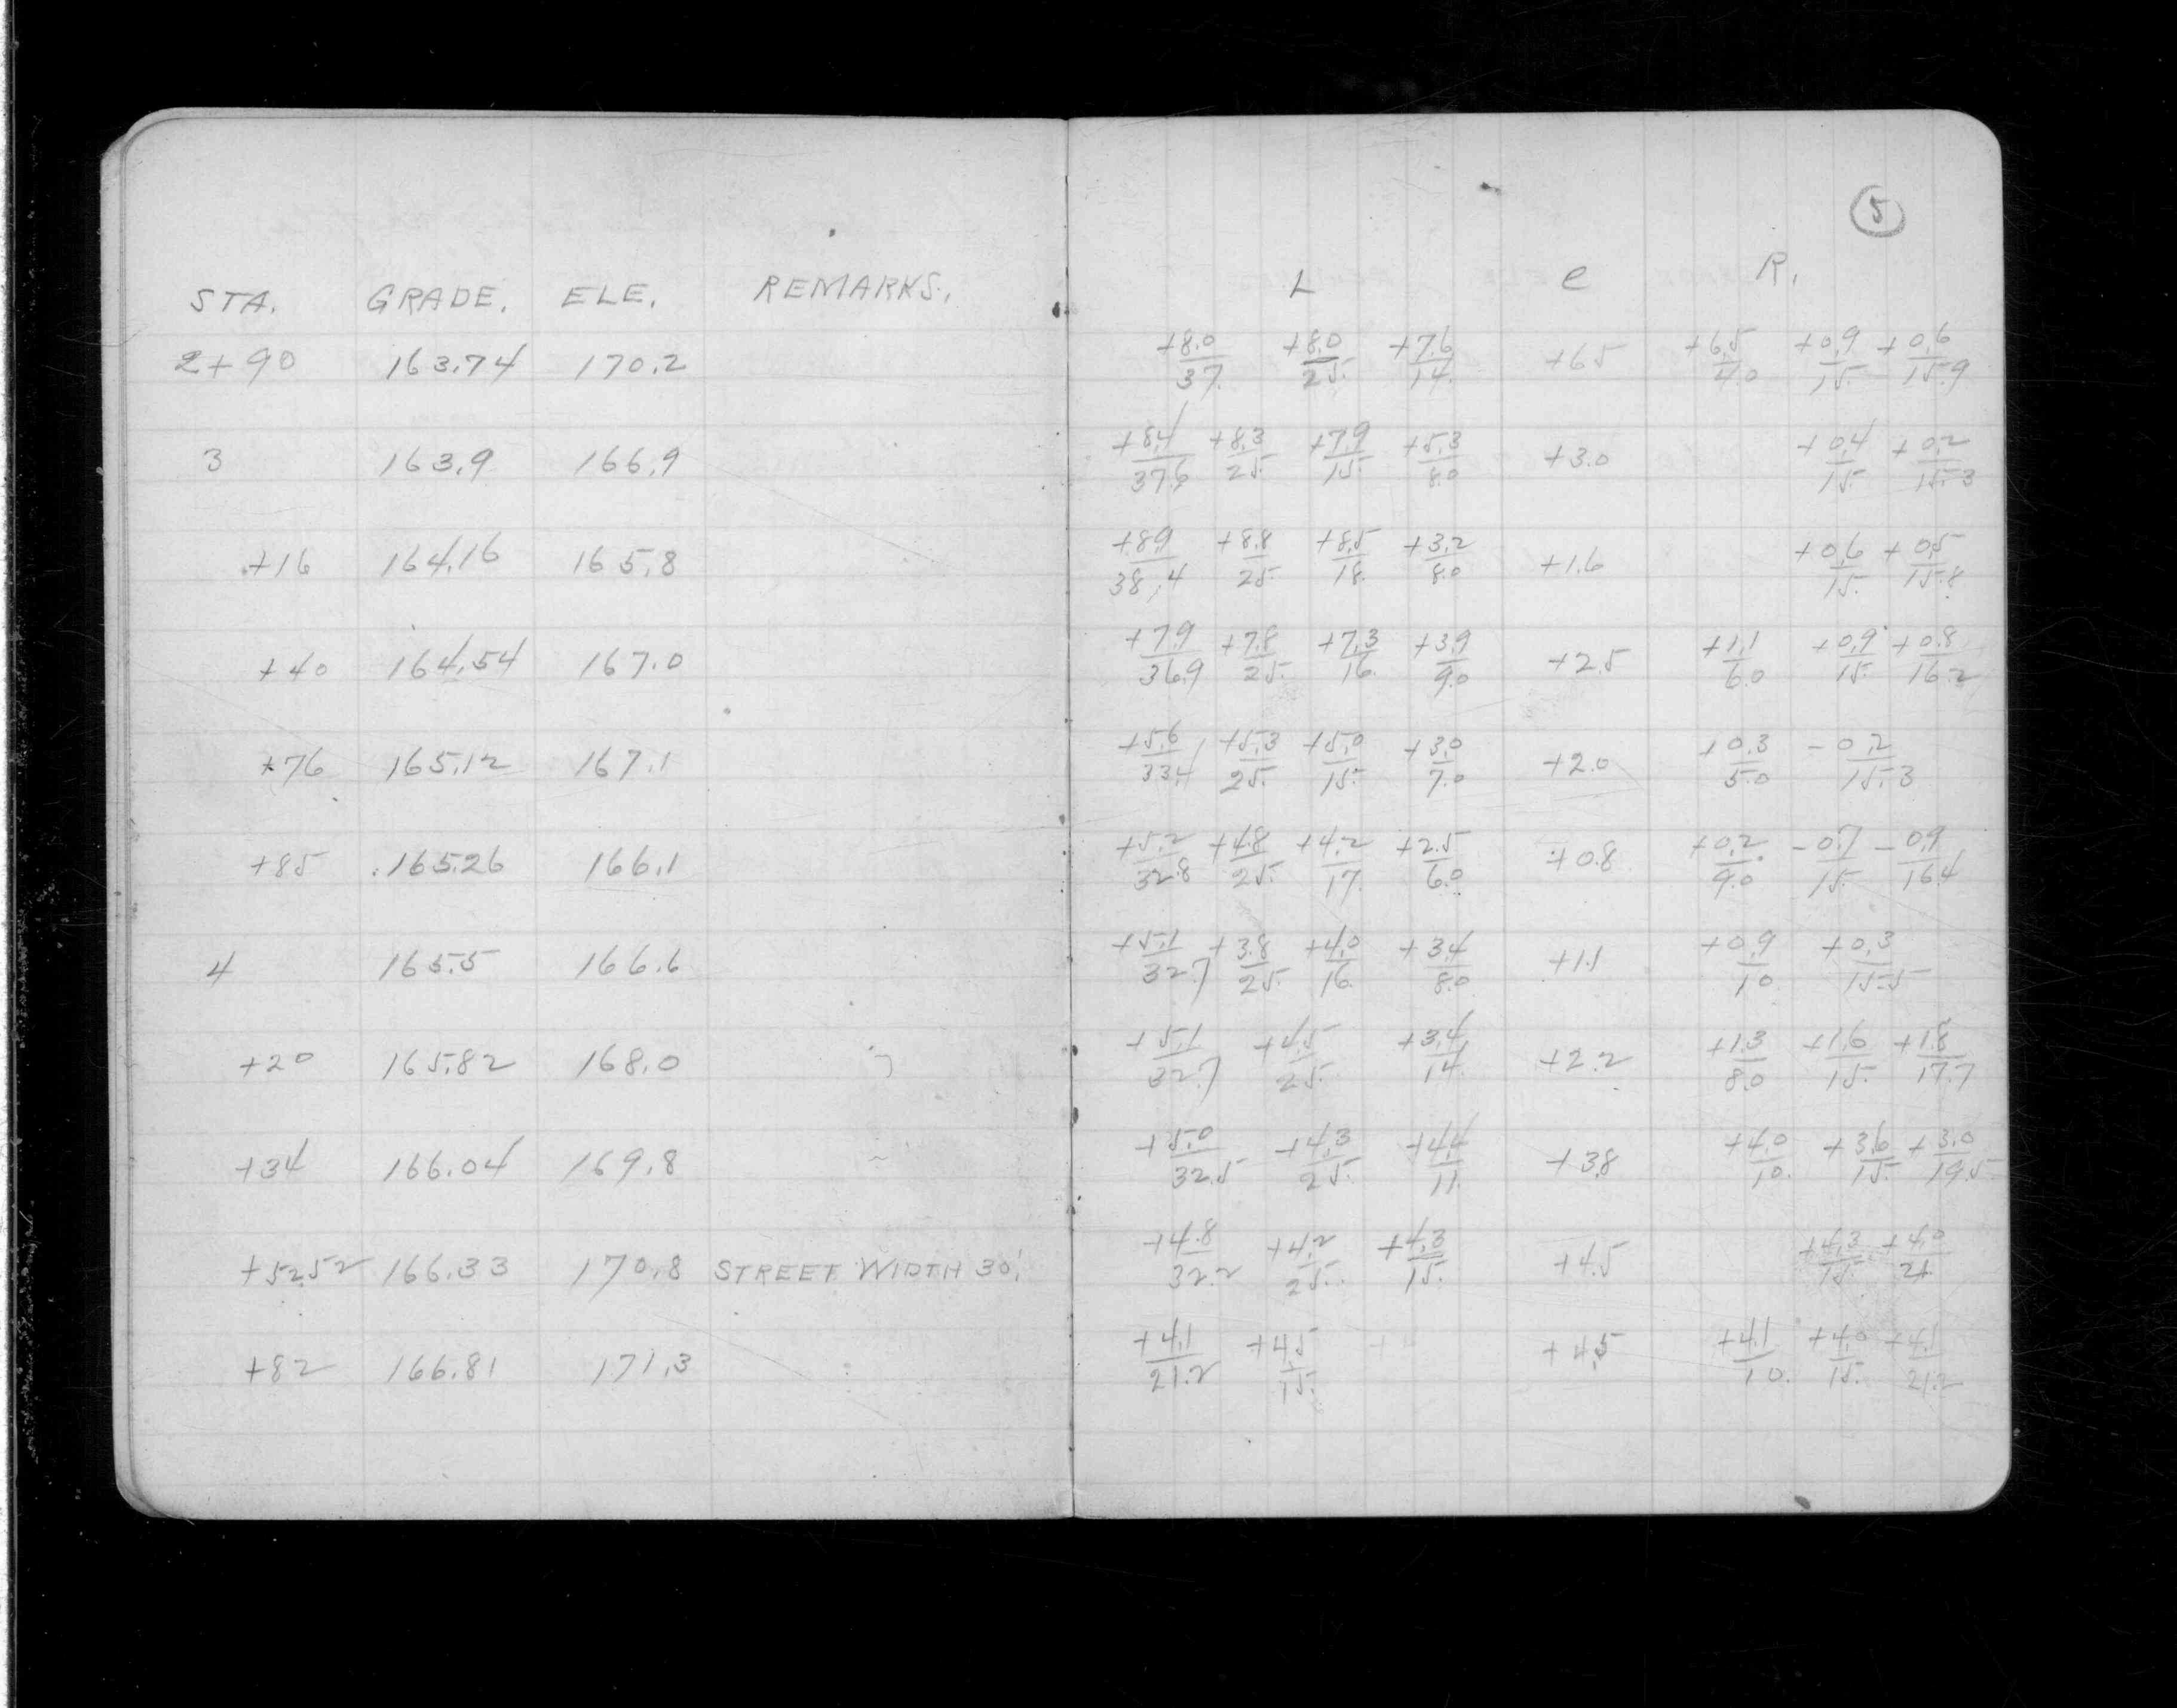 5
STA. GRADE. ELE. REMARKS. L C R.
2+90 163.74 170.2 +8.0/37. +8.0/25. +7.6/14. +6.5 +6.5/4.0 +0.9/15. +0.6/15.9
3 163.9 166.9 +8.4/37.6 +8.3/25. +7.9/15. +5.3/8.0 +3.0 +0.4/15. +0.2/15.3
+16 164.16 165.8 +8.9/38.4 +8.8/25. +8.5/18. +3.2/8.0 +1.6 +0.6/15. +0.5/15.8
+40 164.54 167.0 +7.9/36.9 +7.8/25. +7.3/16. +3.9/9.0 +2.5 +1.1/6.0 +0.9/15. +0.8/16.2
+76 165.12 167.1 +5.6/33.4 +5.3/25. +5.0/15. +3.0/7.0 +2.0 +0.3/5.0 -0.2/15.3
+85 165.26 166.1 +5.2/32.8 +4.8/25. +4.2/17. +2.5/6.0 +0.8 +0.2/9.0 -0.7/15. -0.9/16.4
4 165.5 166.6 +5.1/32.7 +3.8/25. +4.0/16. +3.4/8.0 +1.1 +0.9/10. +0.3/15.5
+20 165.82 168.0 +5.1/32.7 +4.5/25. +3.4/14. +2.2 +1.3/8.0 +1.6/15. +1.8/17.7
+34 166.04 169.8 +5.0/32.5 +4.3/25. +4.4/11. +3.8 +4.0/10. +3.6/15. +3.0/19.5
+52.52 166.33 170.8 STREET WIDTH 30' +4.8/32.2 +4.2/25. +4.3/15. +4.5 +4.3/15. +4.0/21.
+82 166.81 171.3 +4.1/21.2 +4.5/15. +4.5 +4.1/10. +4.0/15. +4.1/21.2